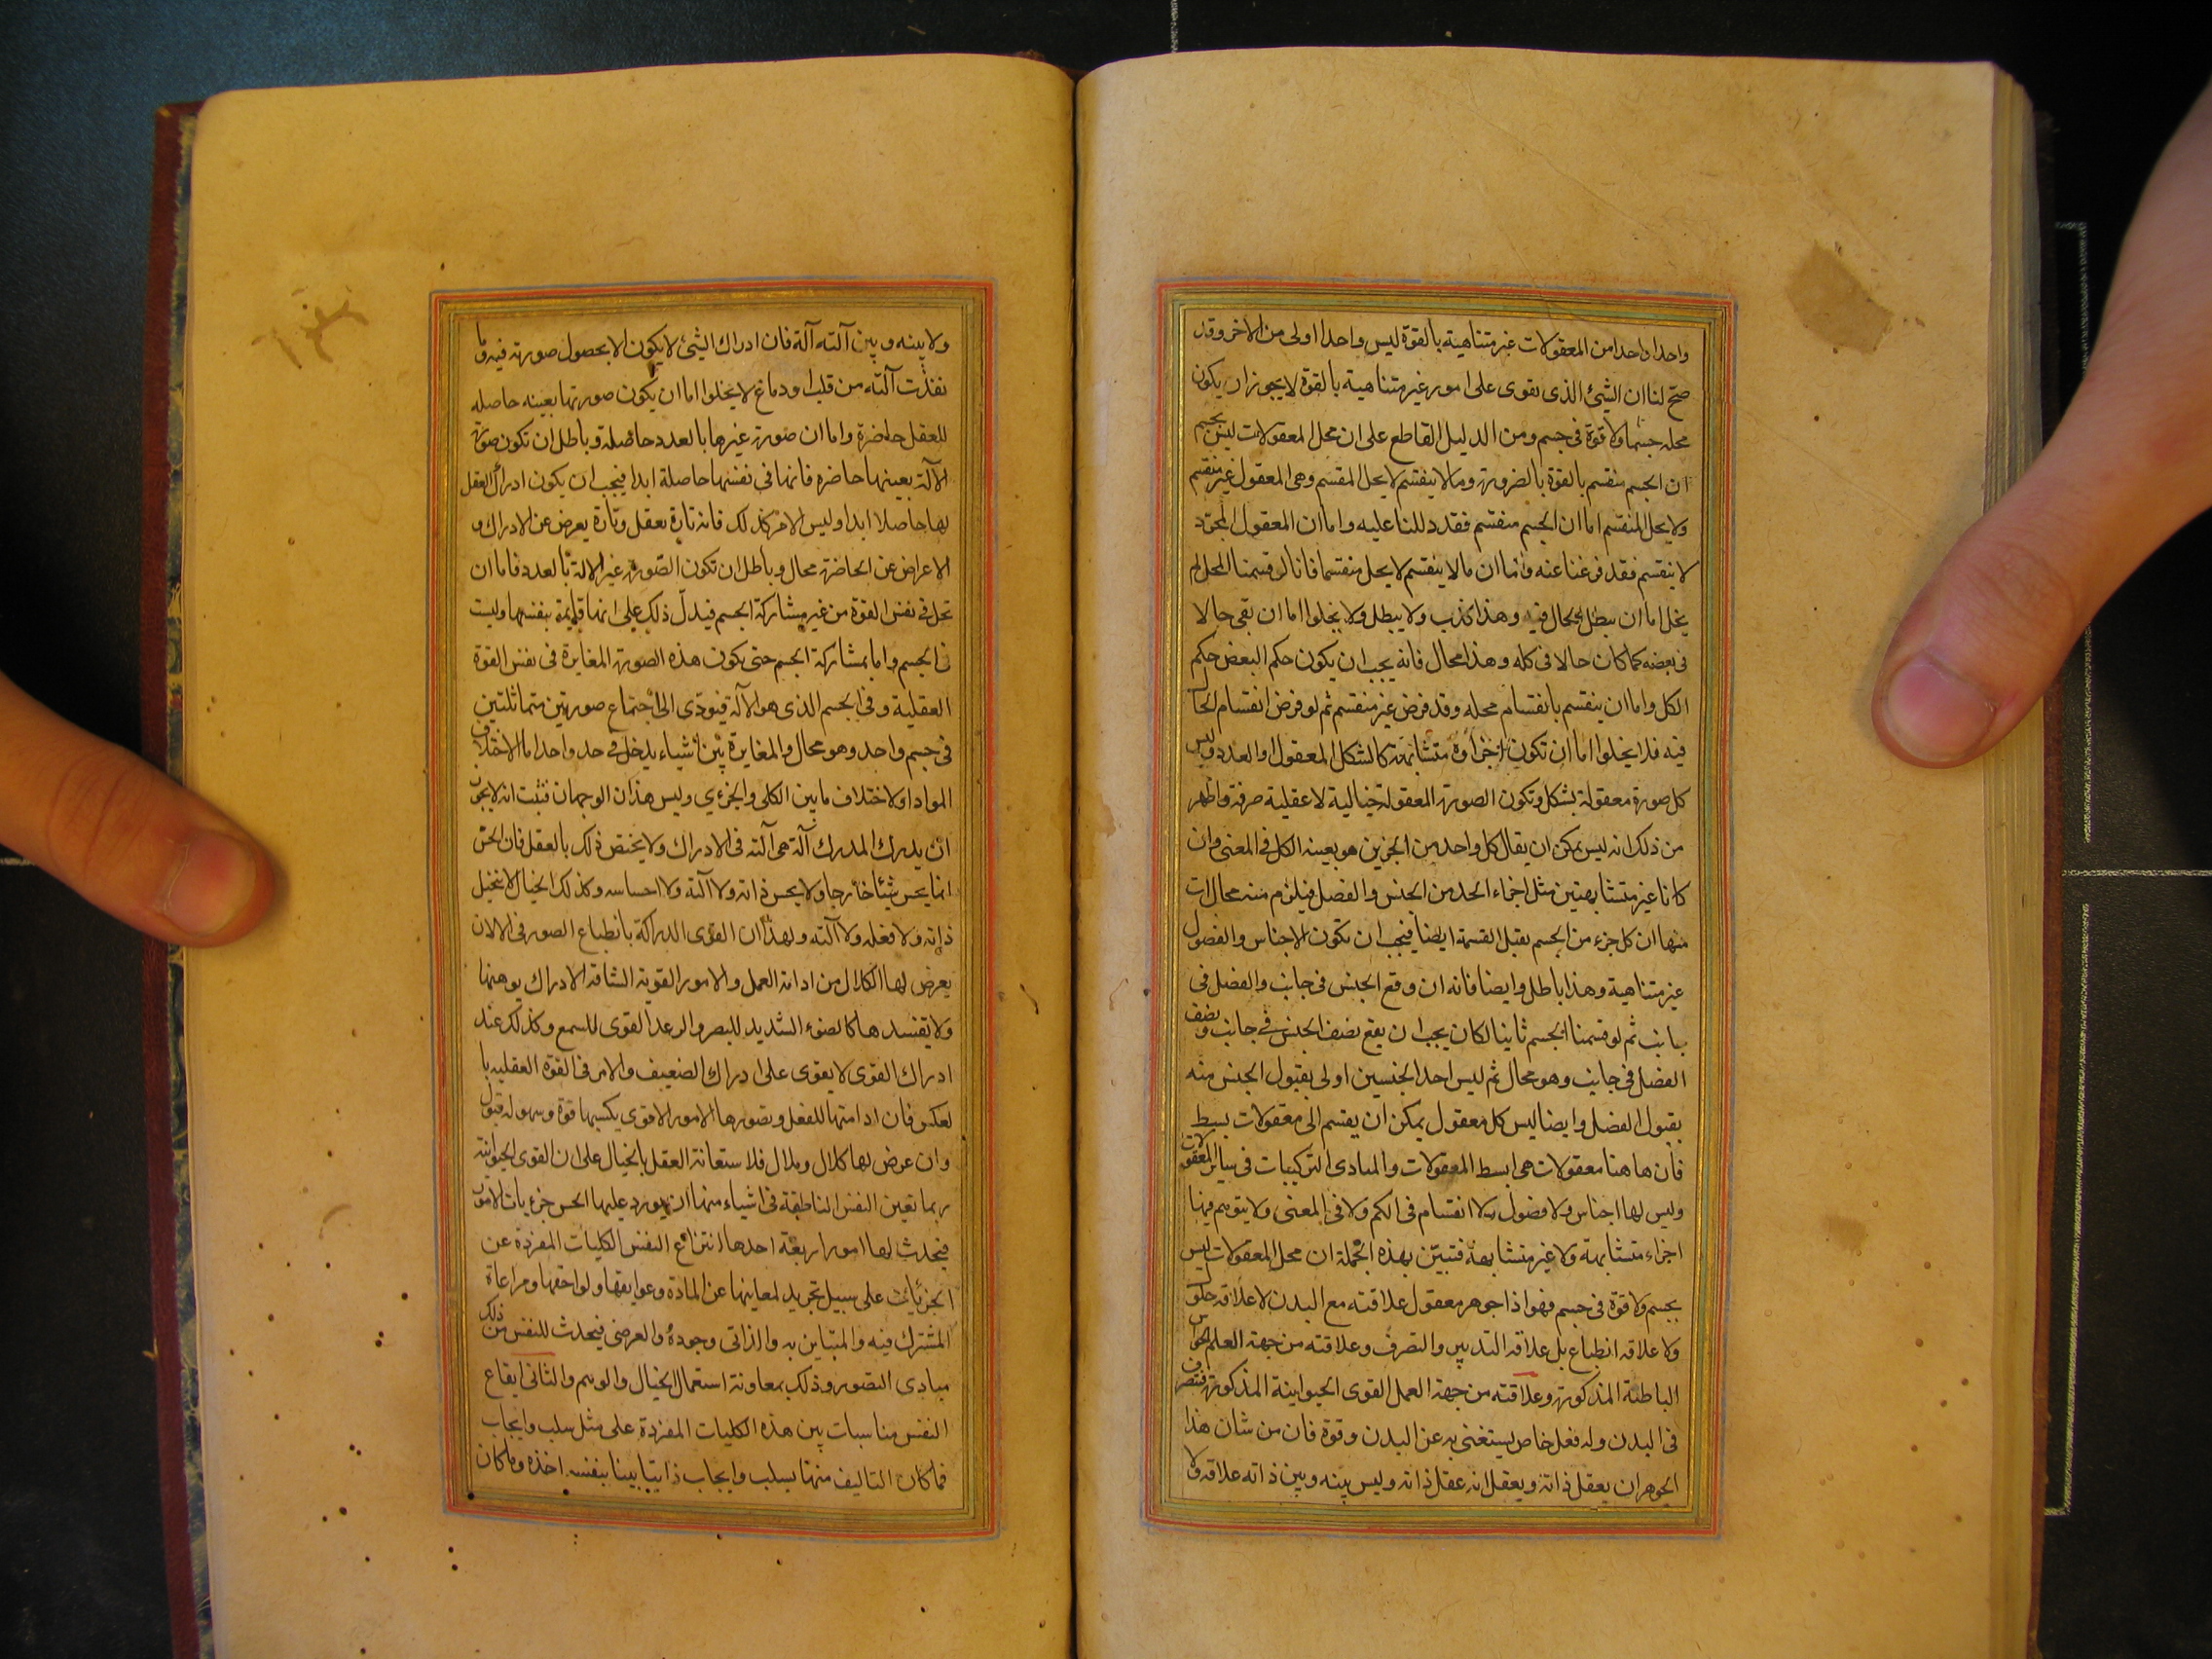 واحدا واحدا من المعقولات غير متناهية بالقوة ليس واحدا اولى من الاخر وقد
صح لنا ان الشئ الذى يقوى على امور غير متناهية بالقوة لا يجوز ان يكون
محله جسما ولا قوة فى جسم ومن الدليل القاطع على ان محل المعقولات ليس بجسم
ان الجسم منقسم بالقوة بالضرورة وما لا ينقسم لا يحل المنقسم وهى المعقول غير منقسم
ولا يحل المنقسم اما ان الجسم منقسم فقد دللنا عليه واما ان المعقول المجرد
لا ينقسم فقد فرغنا عنه واما ان ما لا ينقسم لا يحل منقسما فانا لو قسمنا المحل لم
يخل اما ان يبطل الحال فيه وهذا كذب ولا يبطل ولا يخلوا اما ان بقى حالا
فى بعضه كما كان حالا فى كله وهذا محال فانه يجب ان يكون حكم البعض حكم
الكل واما ان ينقسم بانقسام محله وقد فرض غير منقسم ثم لو فرض انقسام الحال
فيه فلا يخلوا اما ان تكون اجزاؤه متشابهة كالشكل المعقول او العدد وليس
كل صورة معقولة بشكل وتكون الصورة المعقولة خيالية لا عقلية صرفة واظهر
من ذلك انه ليس يمكن ان يقال كل واحد من الجزئين هو بعينه الكل فى المعنى وان
كانا غير متشابهتين مثل اجزاء الحد من الجنس والفصل فيلزم منه محالات
منها ان كل جزء من الجسم يقبل القسمة ايضا فيجب ان تكون الاجناس والفصول
غير متناهية وهذا باطل وايضا فانه ان وقع الجنس فى جانب والفصل فى
جانب ثم لو قسمنا الجسم ثانيا لكان يجب ان يقع نصف الجنس فى جانب ونصف
الفصل فى جانب وهو محال ثم ليس احد الجنسين اولى بقبول الجنس منه
بقبول الفصل وايضا ليس كل معقول يمكن ان يقسم الى معقولات بسيط
فان هاهنا معقولات هى ابسط المعقولات والمبادى التركيبات فى سائر المعقولات
وليس لها اجناس ولا فصول ولا انقسام فى الكم ولا فى المعنى ولا يتوهم فيها
اجزاء متشابهة ولا غير متشابهة فتبين بهذه الجملة ان محل المعقولات ليس
بجسم ولا قوة فى جسم فهو اذا جوهر معقول علاقته مع البدن لا علاقة حلول
ولا علاقة انطباع بل علاقة التدبير والتصرف وعلاقته من جهة العلم الحواس
الباطنة المذكورة وعلاقته من جهة العمل القوى الحيوانية المذكورة فتتصرف
فى البدن وله فعل خاص يستغنى به عن البدن وقوة فان من شان هذا
الجوهر ان يعقل ذاته ويعقل انه عقل ذاته وليس بينه وبين ذاته علاقة ولا
ولا بينه وبين آلته آلة فان ادراك الشئ لا يكون الا بحصول صورته فيه وما
آلته من قلب او دماغ لا يخلوا اما ان يكون صورتها بعينه حاصله
للعقل حاضرة واما ان صورة غيرها بالعدد حاصلة وباطل ان تكون صورة
الآلة بعينها حاضرة فانها فى نفسها حاصلة ابدا فيجب ان يكون ادراك العقل
لها حاصلا ابدا وليس الامر كذلك فانه تارة يعقل وتارة يعرض عن الادراك و
الاعراض عن الحاضرة محال وباطل ان تكون الصورة غير الالة بالعدد فاما ان
تحل فى نفس القوة من غير مشاركة الجسم فيدل ذلك على انها قايمة بنفسها وليست
فى الجسم واما بمشاركة الجسم حتى يكون هذه الصورة المغايرة فى نفس القوة
العقلية وفى الجسم الذى هو الآلة فيؤدى الى اجتماع صورتين متماثلتين
فى جسم واحد وهو محال والمغايرة بين اشياء يدخل فى حد واحد اما لاختلاف
المواد او لاختلاف ما بين الكلى والجزءى وليس هذان الوجهان فثبت انه لا يجوز
ان يدرك المدرك آلة هى آلته فى الادراك ولا يختص ذلك بالعقل فان الحس
انما يحس شيئا خارجا ولا يحس ذاته ولا آلته ولا احساسه وكذلك الخيال لا يتخيل
ذاته ولا فعله ولا آلته ولهذا ان القوى الدراكة بانطباع الصور فى الالات
يعرض لها الكلال من ادامة العمل والامور القوية الشاقة الادراك يوهنها
ولا تفسدها كالضوء الشديد للبصر والرعد القوى للسمع وكذلك عند
ادراك القوى لا يقوى على ادراك الضعيف والامر فى القوة العقليه با
لعكس فان ادامتها للفعل وتصورها الامور الاقوى يكسبها قوة وسهولة قبول
وان عرض لها كلال وملال فلاستعانة العقل بالخيال على ان القوى الحيوانية
ربما تعين النفس الناطقة فى اشياء منها ان يورد عليها الحس جزءيات الامور
فيحدث لها امور اربعة احدها انتزاع النفس الكليات المفردة عن
الجزئيات على سبيل تجريد لمعاينها عن المادة وعوايقها ولواحقها ومراعاة
المشترك فيه والمتباين به والذاتى وجوده والعرضى فيحدث للنفس من ذلك
مبادى التصور وذلك بمعاونة استعمال الخيال والوهم والثانى ايقاع
النفس مناسبات بين هذه الكليات المفردة على مثل سلب وايجاب
فما كان التاليف منها بسلب وايجاب ذاتيا بينا بنفسه اخذه وما كان